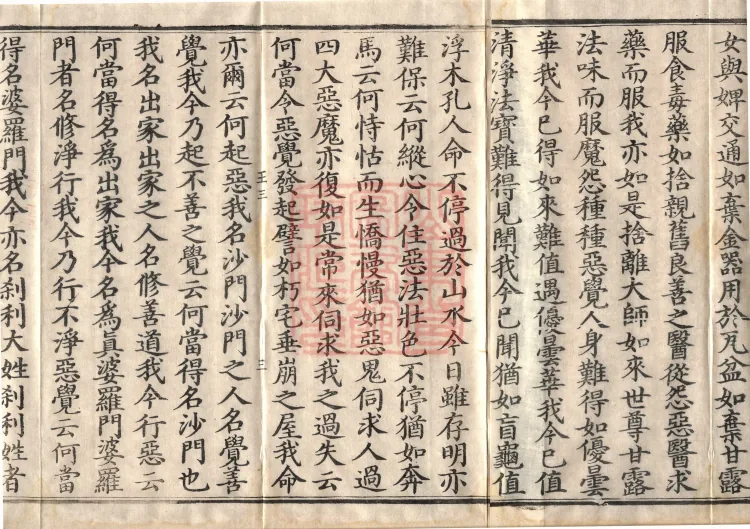 女與婢交通如棄金器用於瓦盆如棄甘露
服食毒藥如捨親舊良善之醫從怨惡醫求
藥而服我亦如是捨離大師如來世尊甘露
法味而服魔怨種種惡覺人身難得如優曇
華我今已得如來難值遇優曇華我今已值
清淨法寶難得見聞我今已聞猶如盲龜值
浮木孔人命不停過於山水今日雖存明亦
難保云何縱心令住惡法壯色不停猶如奔
馬云何恃怙而生憍慢猶如惡鬼伺求人過
四大惡魔亦復如是常來伺求我之過失云
何當令惡覺發起譬如朽宅垂崩之屋我命
王三
三
亦爾云何起惡我名沙門沙門之人名覺善
覺我今乃起不善之覺云何當得名沙門也
我名出家出家之人名修善道我今行惡云
何當得名為出家我今名為真婆羅門婆羅
門者名修淨行我今乃行不淨惡覺云何當
得名婆羅門我今亦名剎利大姓剎利姓者